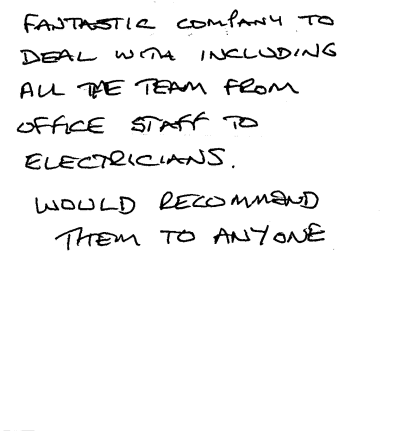 FANTASTIC COMPANY TO
DEAL WITH INCLUDING
ALL THE TEAM FROM
OFFICE STAFF TO
ELECTRICIANS.
WOULD RECOMMEND
THEM TO ANYONE